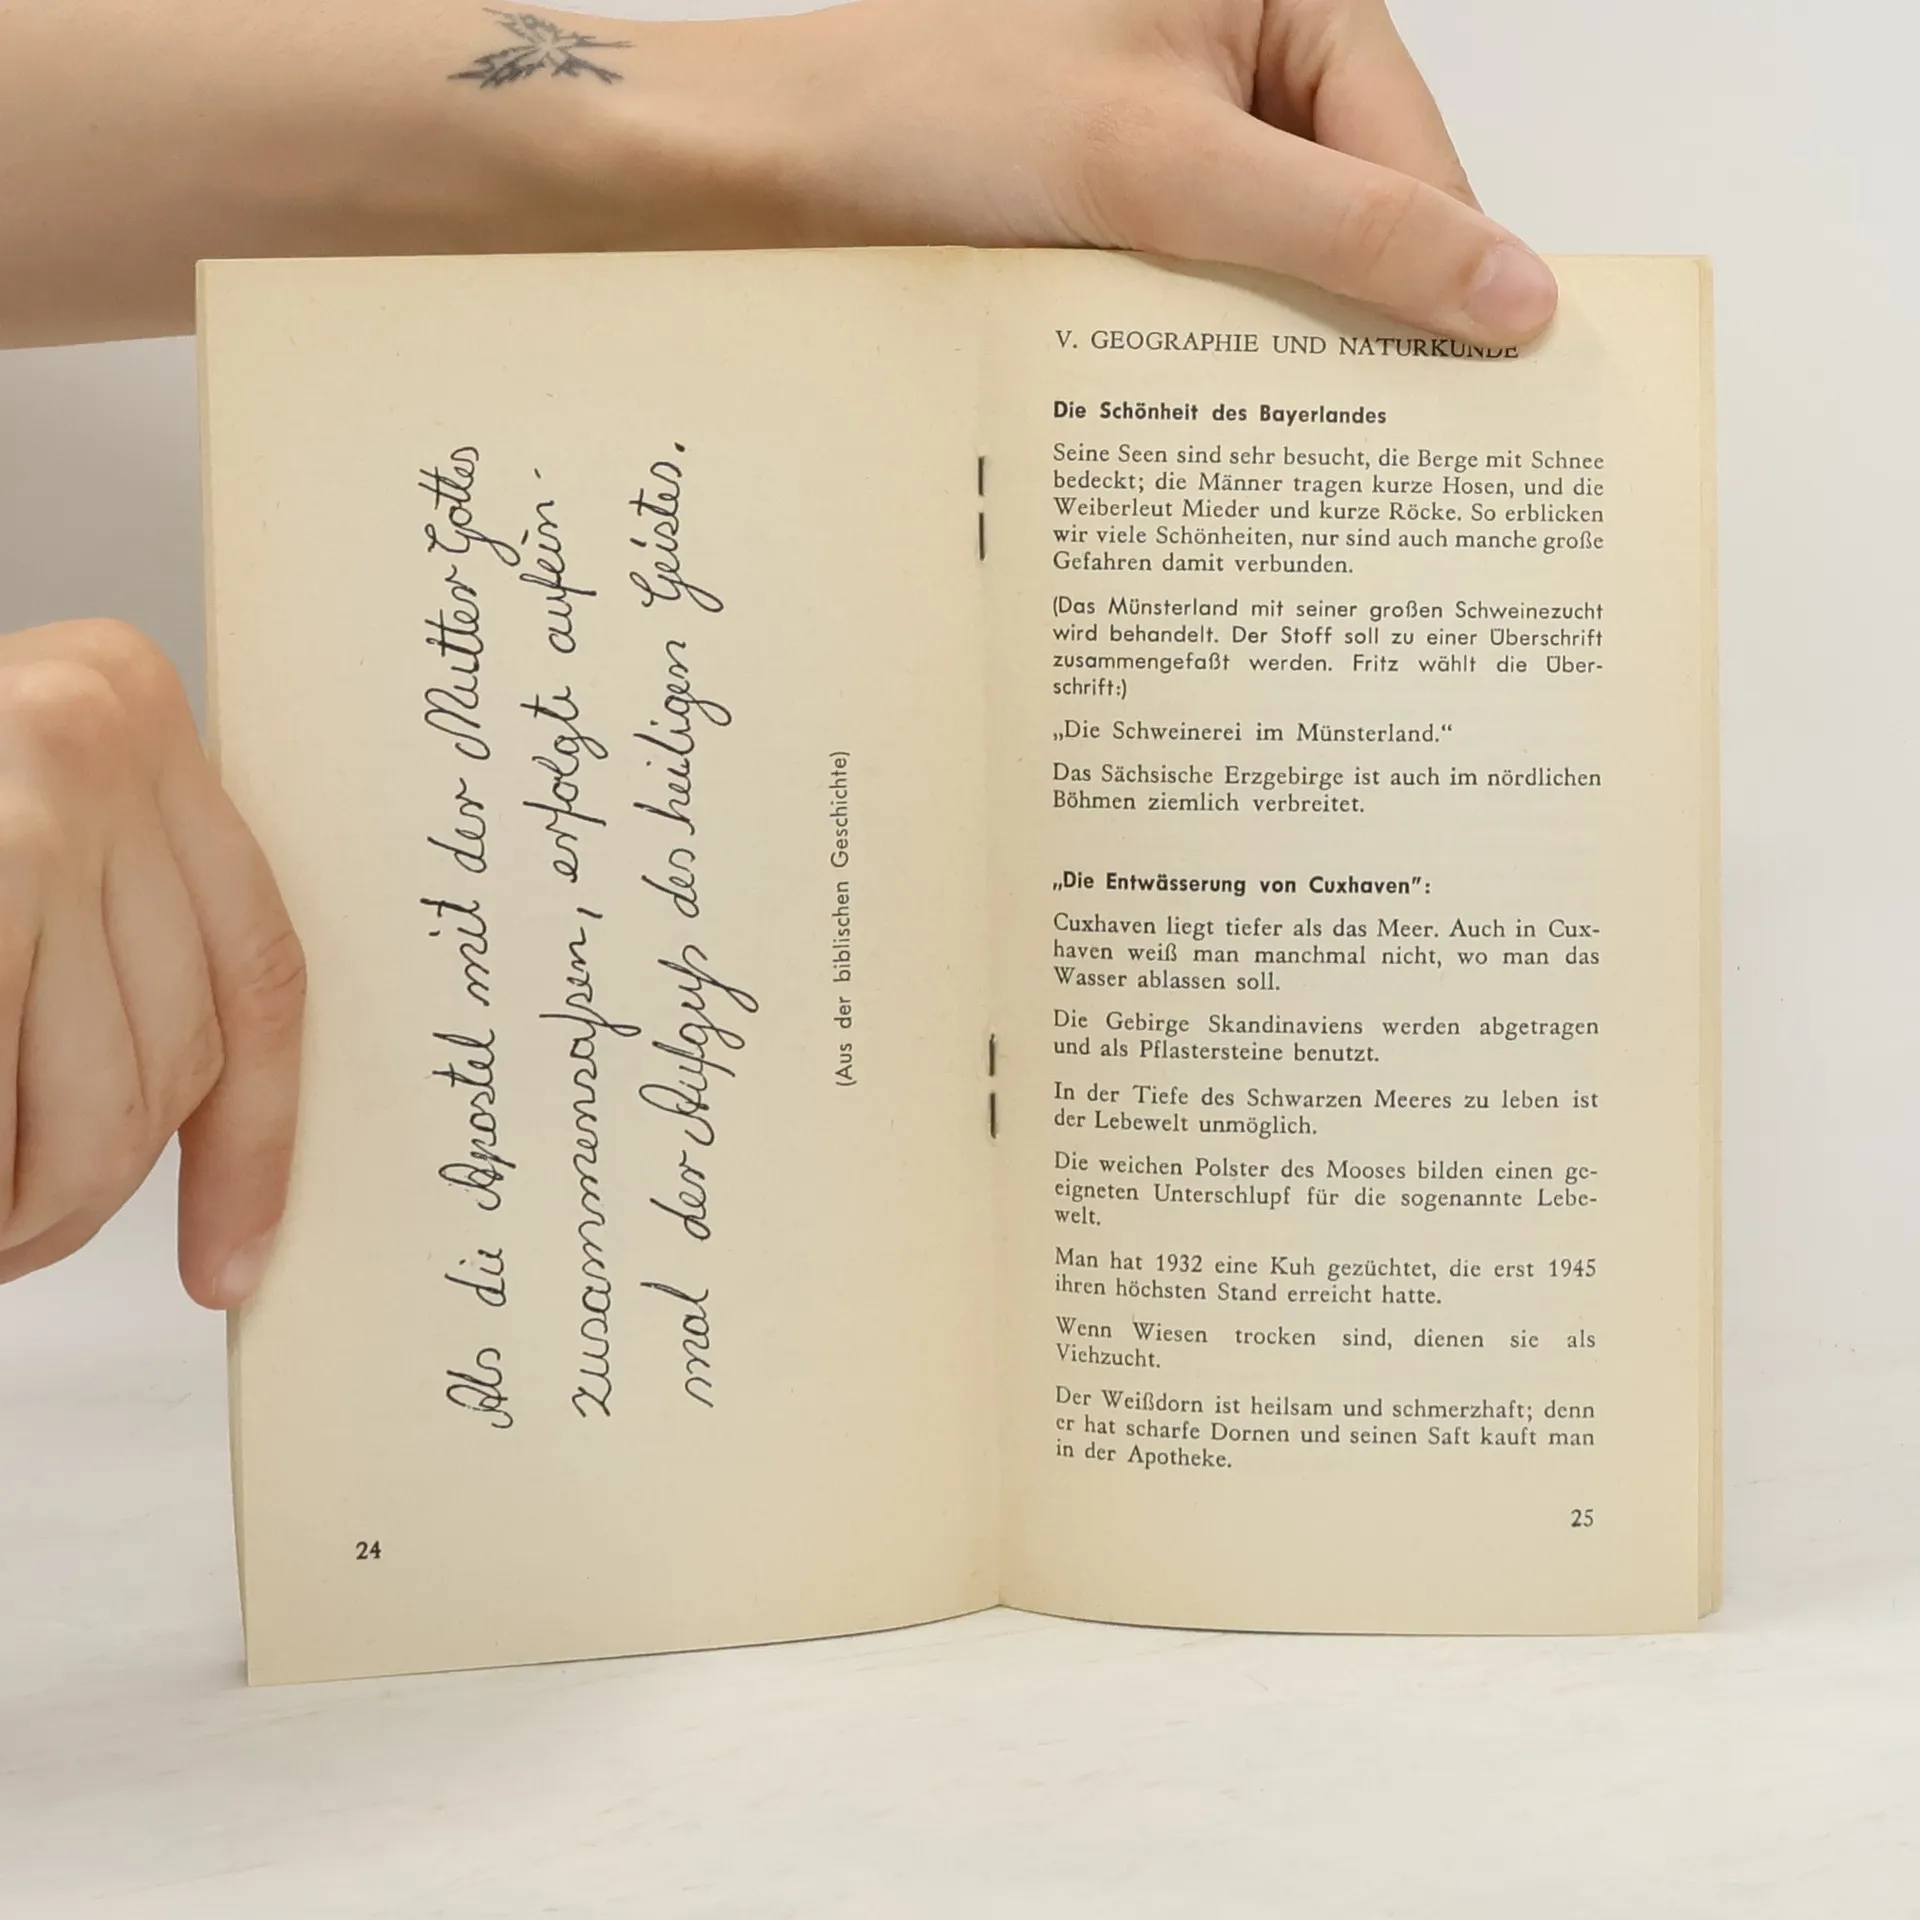 Als die Apostel mit der Mutter Gottes
zusammensaßen, erfolgte aufein-
mal der Aufguß des heiligen Geistes.
(Aus der biblischen Geschichte)
24
V. GEOGRAPHIE UND NATURKUNDE
Die Schönheit des Bayerlandes
Seine Seen sind sehr besucht, die Berge mit Schnee
bedeckt; die Männer tragen kurze Hosen, und die
Weiberleut Mieder und kurze Röcke. So erblicken
wir viele Schönheiten, nur sind auch manche große
Gefahren damit verbunden.
(Das Münsterland mit seiner großen Schweinezucht
wird behandelt. Der Stoff soll zu einer Überschrift
zusammengefaßt werden. Fritz wählt die Über-
schrift:)
„Die Schweinerei im Münsterland.“
Das Sächsische Erzgebirge ist auch im nördlichen
Böhmen ziemlich verbreitet.
„Die Entwässerung von Cuxhaven":
Cuxhaven liegt tiefer als das Meer. Auch in Cux-
haven weiß man manchmal nicht, wo man das
Wasser ablassen soll.
Die Gebirge Skandinaviens werden abgetragen
und als Pflastersteine benutzt.
In der Tiefe des Schwarzen Meeres zu leben ist
der Lebewelt unmöglich.
Die weichen Polster des Mooses bilden einen ge-
eigneten Unterschlupf für die sogenannte Lebe-
welt.
Man hat 1932 eine Kuh gezüchtet, die erst 1945
ihren höchsten Stand erreicht hatte.
Wenn Wiesen trocken sind, dienen sie als
Viehzucht.
Der Weißdorn ist heilsam und schmerzhaft; denn
er hat scharfe Dornen und seinen Saft kauft man
in der Apotheke.
25